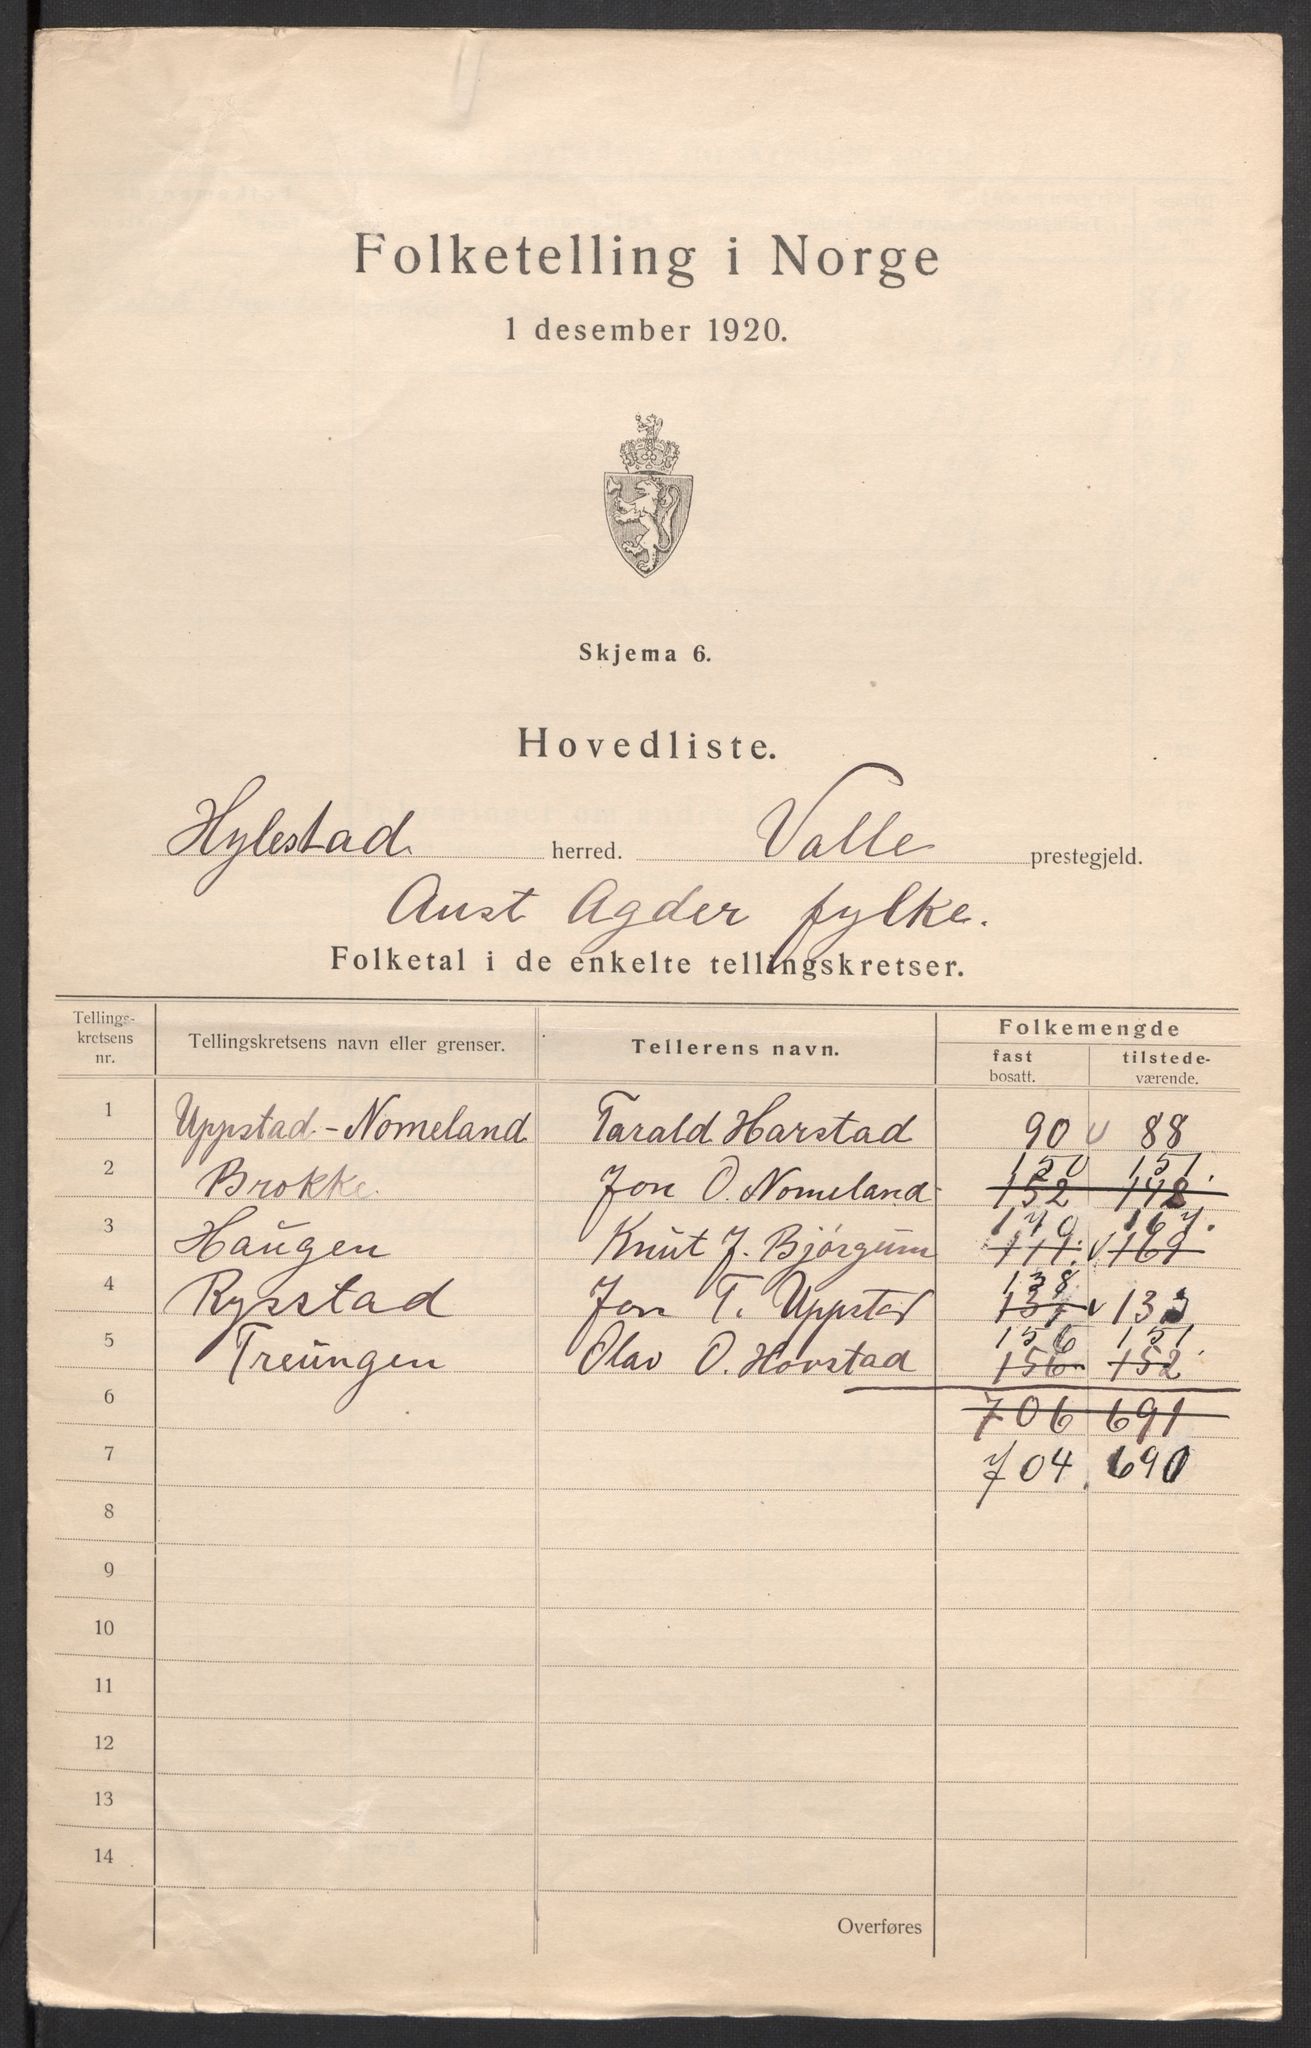 Folketelling i Norge
1 desember 1920.
Skjema 6.
Hovedliste.
Hylestad herred. Valle prestegjeld.
Aust Agder fylke.
Folketal i de enkelte tellingskretser.
Tellings-kretsens nr. Tellingskretsens navn eller grenser. Tellerens navn. Folkemengde
fast bosatt. tilstede-værende.
1 Uppstad-Nomeland Tarald Harstad 90 v 88
150 151.
2 Brokke Jon O. Nomeland 152 148
170 167.
3 Haugen Knut J. Bjørgum 171. v 169
138
4 Rysstad Jon T. Uppstad 137 v 133
156 151.
5 Treungen Olav O. Hovstad 156 152
6 706 691
7 704. 690
8
9
10
11
12
13
14
Overføres